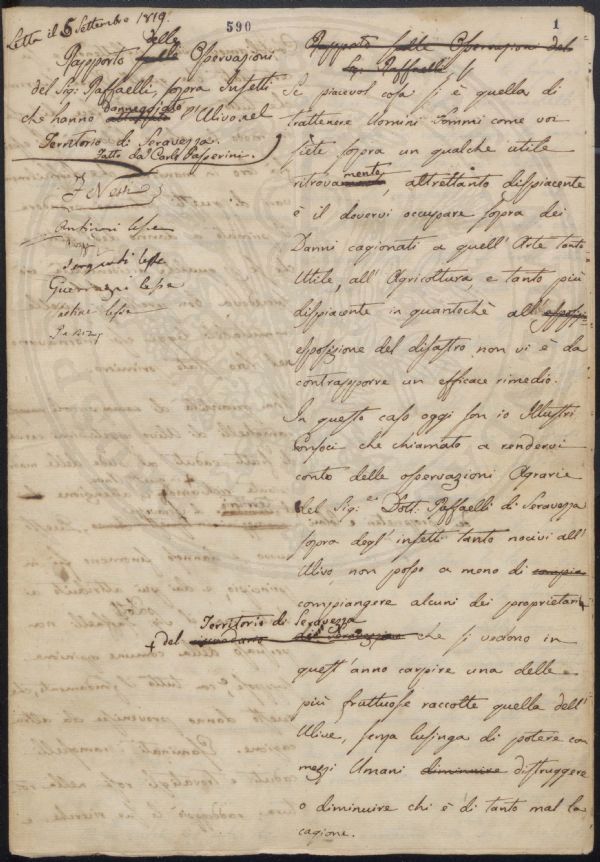 Letta il 5 Settembre 1819.
590
1
Rapporto sulle delle Osservazioni
del Sig: Raffaelli, sopra Insetti
che hanno danneggiato gl'Ulivi nel
Territorio di Seravezza.
Fatto da Carlo Passerini.
F Nesti
Antinori lesse
lesse
Guerrazzi lesse
lesse
Rapporto sulle Osservazioni del
Sig: Raffaelli
Se piacevol cosa si è quella di
trattenere Uomini Sommi come voi
siete sopra un qualche utile
ritrovamento, altrettanto dispiacente
è il dovervi occupare sopra dei
Danni cagionati a quell'Arte tanto
Utile, all'Agricoltura, e tanto più
dispiacente in quantochè all'esposiz
esposizione del disastro non vi è da
contrapporre un efficace rimedio.
In questo caso oggi son io Illustri
Consoci che chiamato a rendervi
conto delle osservazioni Agrarie
del Sig:e Dott: Raffaelli di Seravezza
sopra degl'insetti tanto nocivi all'
Ulivo non posso a meno di compia
compiangere alcuni dei proprietari
Territorio di Seravezza
† del che si vedono in
quest'anno carpire una delle
più fruttuose raccolte quella dell'
Ulive, senza lusinga di potere con
mezzi Umani diminuire distruggere
o diminuire chi è di tanto mal la
cagione.